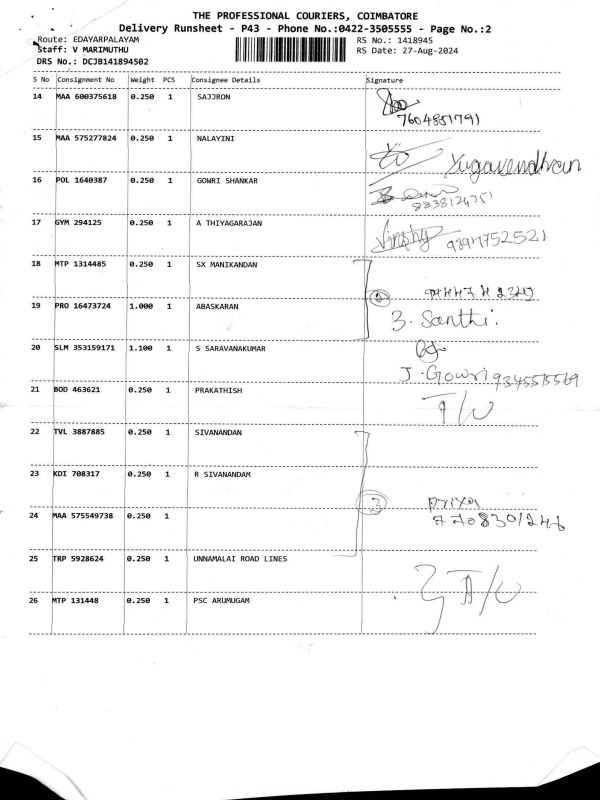 THE PROFESSIONAL COURIERS, COIMBATORE
Delivery Runsheet - P43 - Phone No.:0422-3505555 - Page No.:2
Route: EDAYARPALAYAM
RS No.: 1418945
Staff: V MARIMUTHU
RS Date: 27-Aug-2024
DRS No.: DCJB141894502
S No Consignment No Weight PCS Consignee Details Signature
14 MAA 600375618 0.250 1 SAJJRON
7604851791
15 MAA 575277824 0.250 1 NALAYINI
Yugavendhran
16 POL 1640387 0.250 1 GOWRI SHANKAR
8838124751
17 GYM 294125 0.250 1 A THIYAGARAJAN
9894752521
18 MTP 1314485 0.250 1 SX MANIKANDAN
19 PRO 16473724 1.000 1 ABASKARAN
3. Santhi.
20 SLM 353159171 1.100 1 S SARAVANAKUMAR
J. Gowri
21 BOD 463621 0.250 1 PRAKATHISH
22 TVL 3887885 0.250 1 SIVANANDAN
23 KDI 708317 0.250 1 R SIVANANDAM
3 Priya
24 MAA 575549738 0.250 1
25 TRP 5928624 0.250 1 UNNAMALAI ROAD LINES
26 MTP 131448 0.250 1 PSC ARUMUGAM